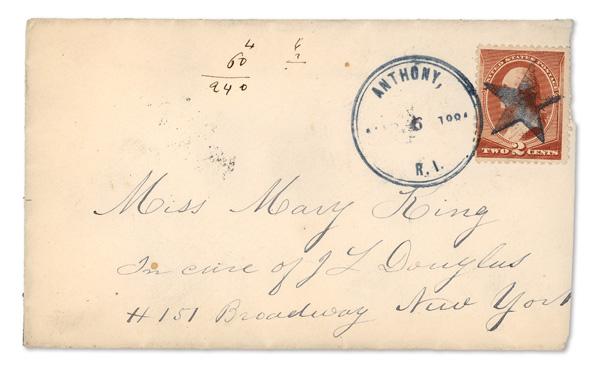 4
60
240
ANTHONY,
6
R.I.
UNITED STATES POSTAGE
TWO 2 CENTS
Miss Mary King
In care of J L Douglus
# 151 Broadway New York